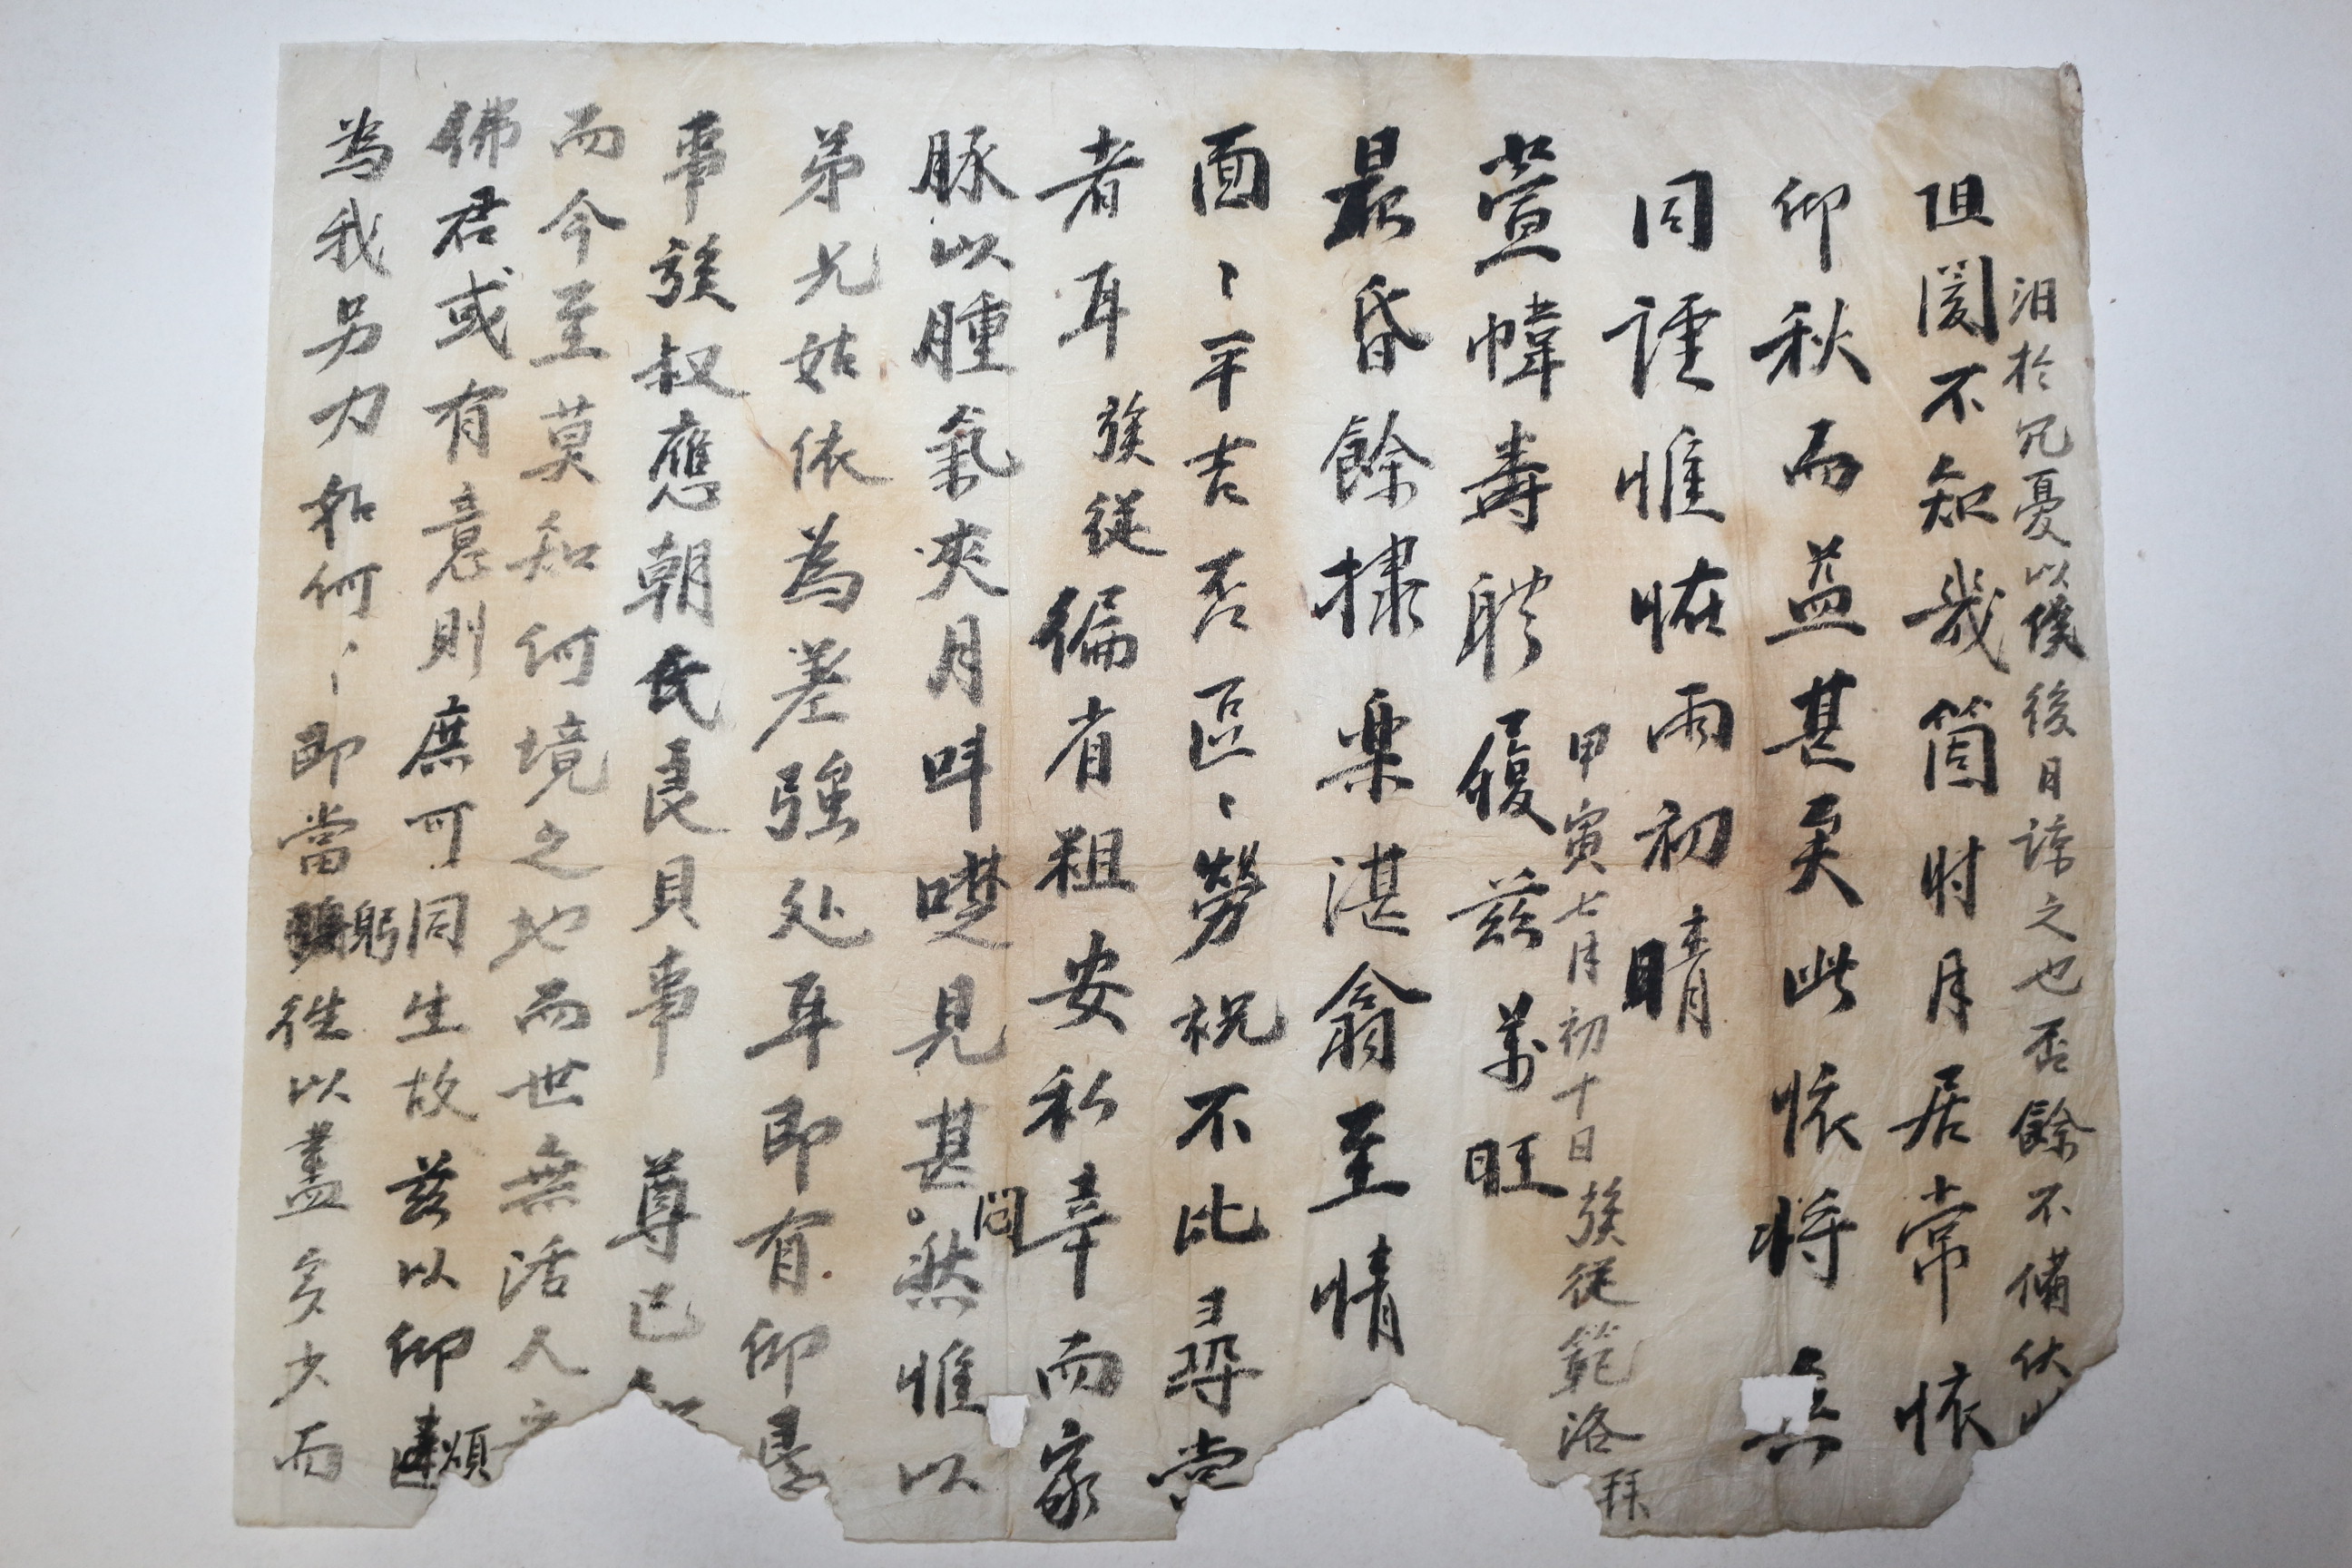 阻閡不知幾箇时月居常悵
仰秋而益甚矣此悵将
同諥惟恠雨初晴
萱幃壽軆履茲萬旺
晨昏餘棣樂湛翕至情
面〻平吉否區〻勞祝不比尋尚
者耳族從徧省粗安私幸而家
豚以腫氣夾月呌噬見甚悶然惟以
弟兄姑依為差強处耳即有仰
事族叔應朝氏良貝事尊已
而今至莫知何境之地而世無活人之
佛君或有意則庶可同生故茲以仰煩
為我另力如何〻即當躬往以盡多少而
汨於冗憂以俟後日諒之也否餘不備伏
甲寅七月初十日族從範洛拜